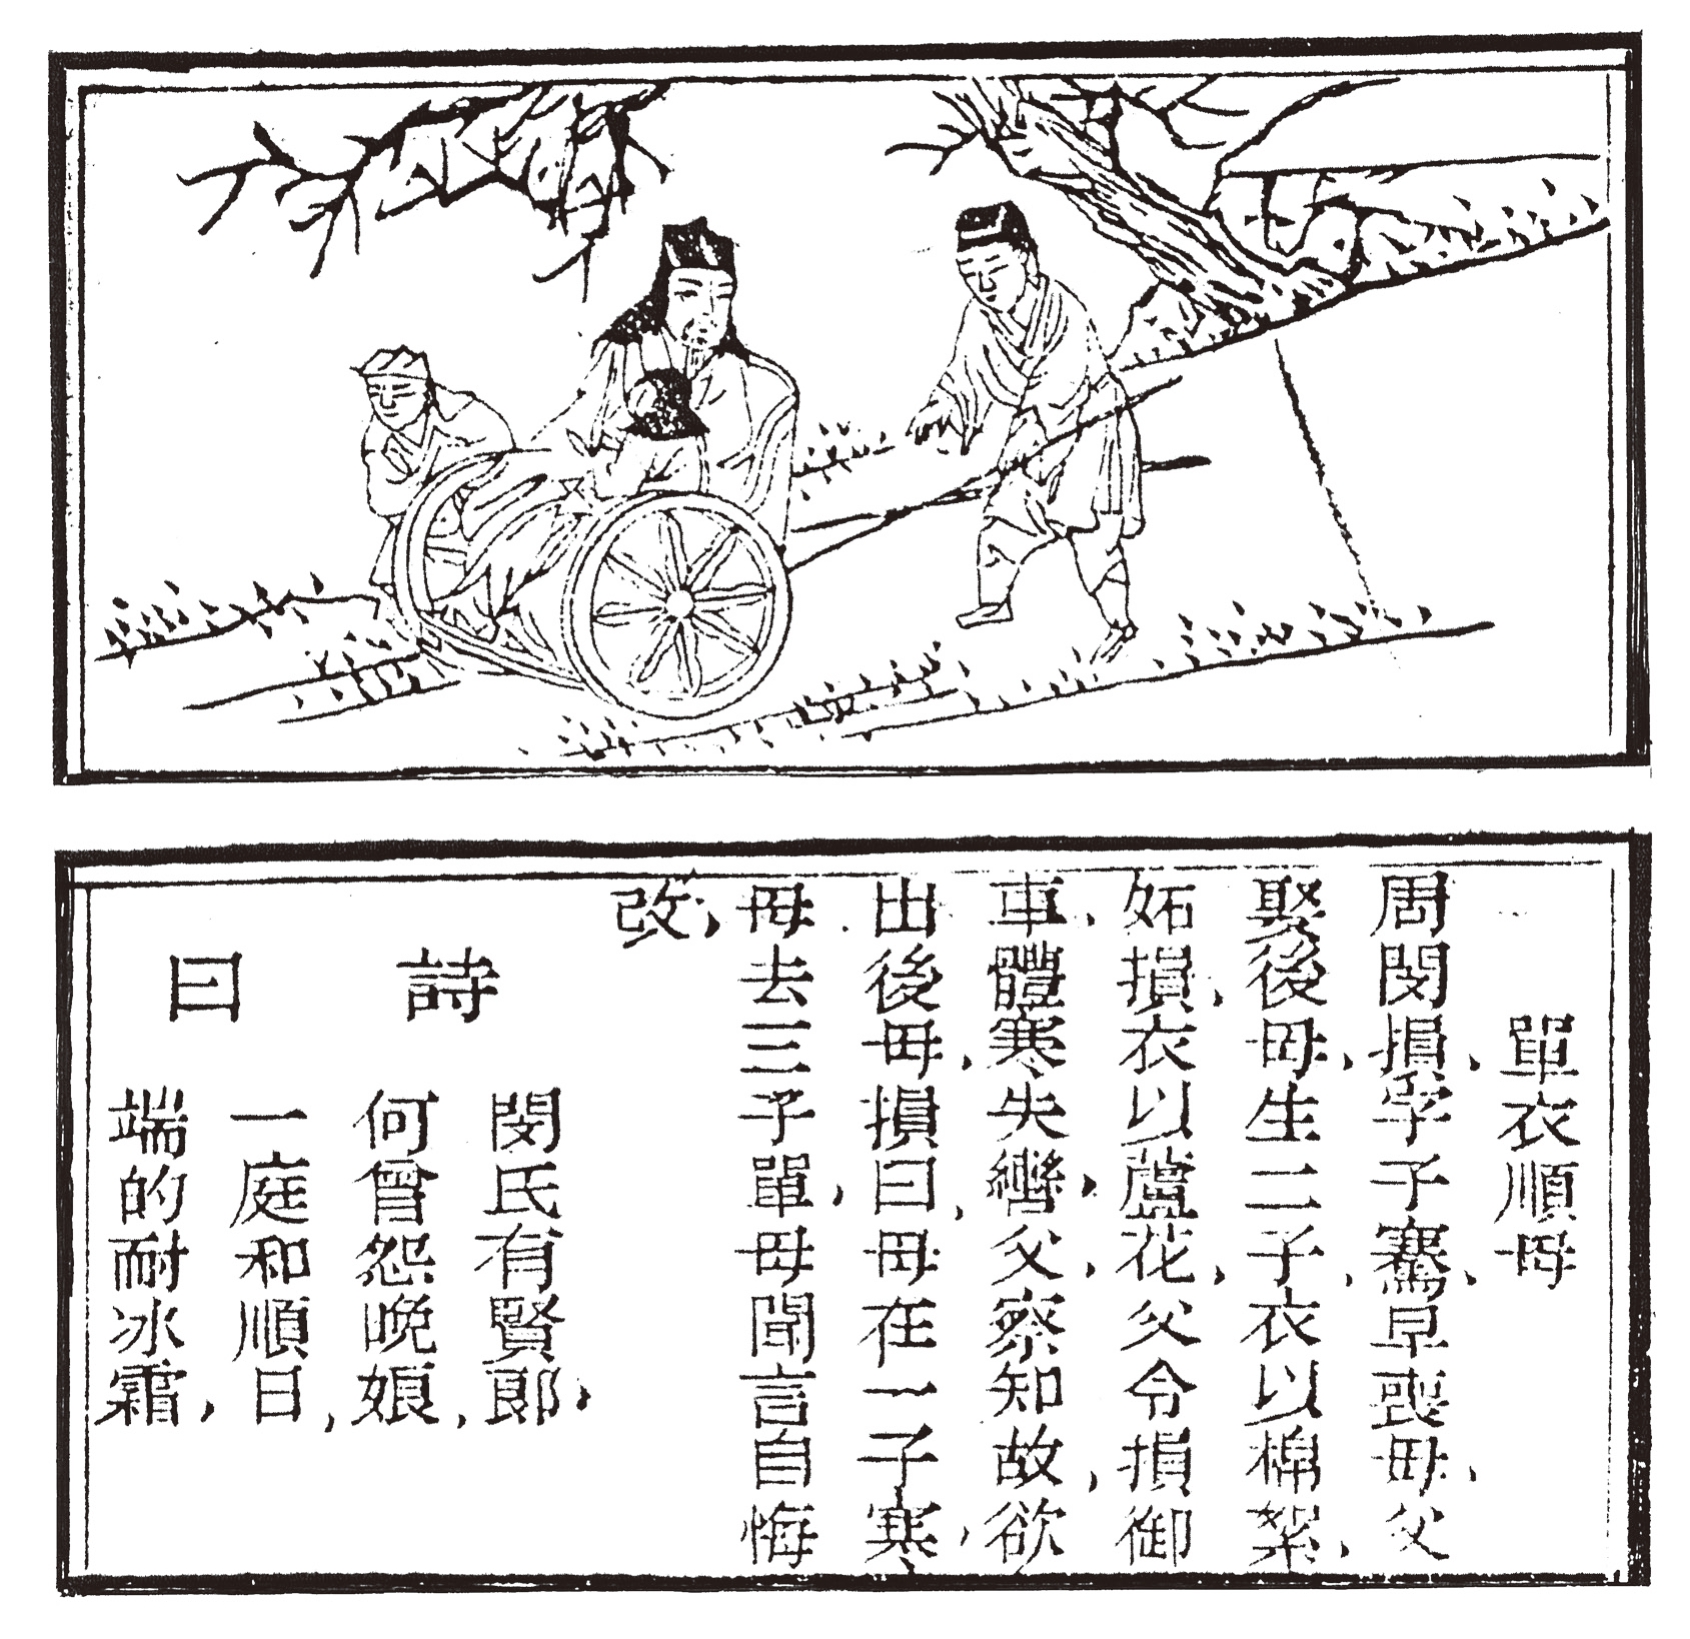 單衣順母
周閔損，字子騫，早喪母，父
娶後母，生二子，衣以棉絮，
妬損，衣以蘆花，父令損御
車，體寒失轡，父察知故，欲
出後母，損曰，母在一子寒，
母去三子單，母聞言自悔
改，
詩
曰
閔氏有賢郎，
何曾怨晚娘，
一庭和順日，
端的耐冰霜，